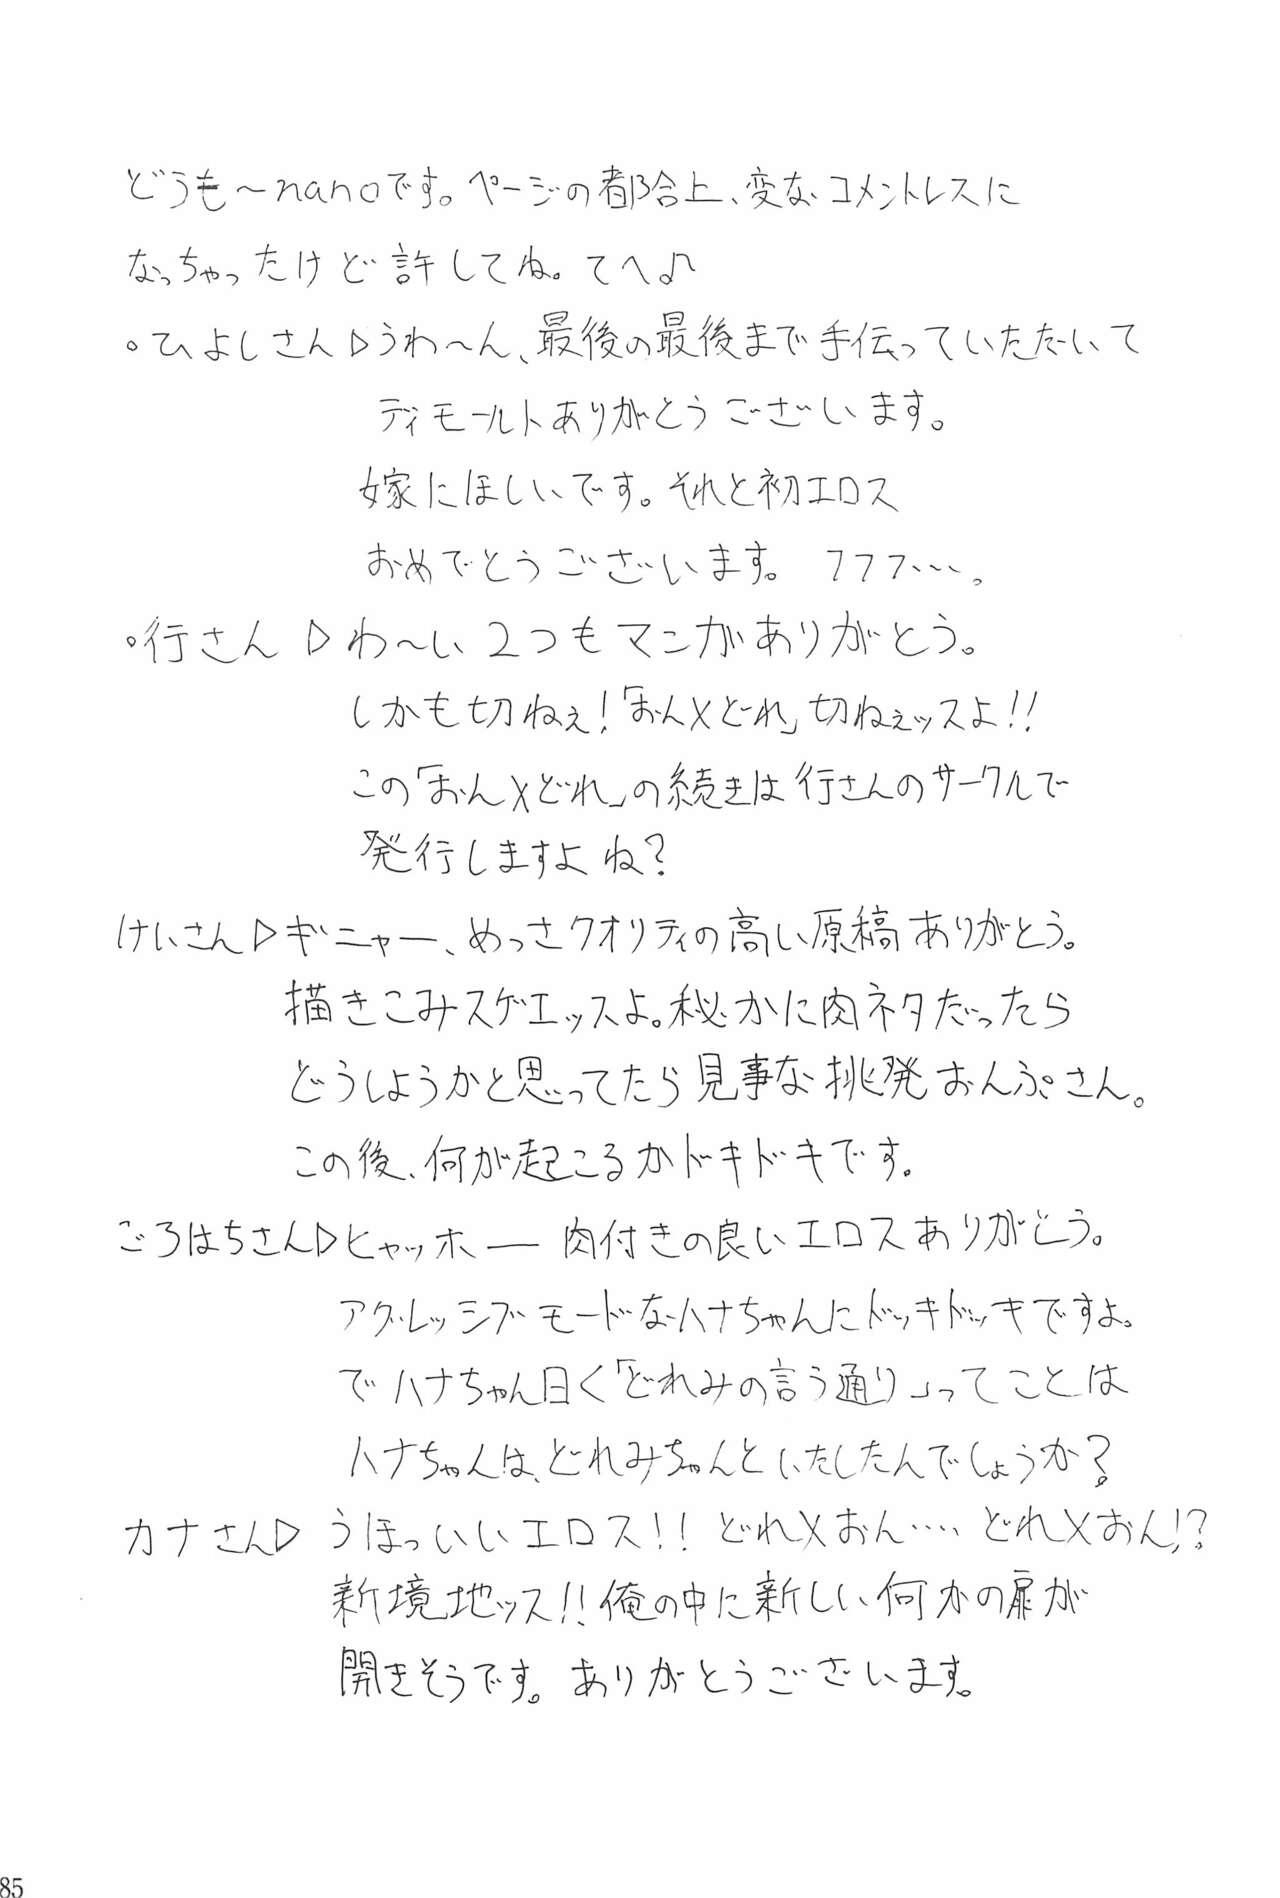 どうも～nanoです。ページの都合上、変なコメントレスに
なっちゃったけど許してね。てへ♪
。ひよしさん▷うわ～ん、最後の最後まで手伝っていただいて
ディモールトありがとうございます。
嫁にほしいです。それと初エロス
おめでとうございます。フフフ…。
。行さん▷わ～い2つもマンガありがとう。
しかも切ねぇ！「おん×どれ」切ねぇッスよ!!
この「おん×どれ」の続きは行さんのサークルで
発行しますよね?
けいさん▷ギニャー、めっさクオリティの高い原稿ありがとう。
描きこみスゲエッスよ。秘かに肉ネタだったら
どうしようかと思ってたら見事な挑発おんぷさん。
この後、何が起こるかドキドキです。
ごろはちさん▷ヒャッホー肉付きの良いエロスありがとう。
アグレッシブモードなハナちゃんにドッキドッキですよ。
でハナちゃん曰く「どれみの言う通り」ってことは
ハナちゃんは、どれみちゃんといたしたんでしょうか?
カナさん▷うほっいいエロス!!どれ×おん‥‥どれ×おん!?
新境地ッス!!俺の中に新しい何かの扉が
開きそうです。ありがとうございます。
85